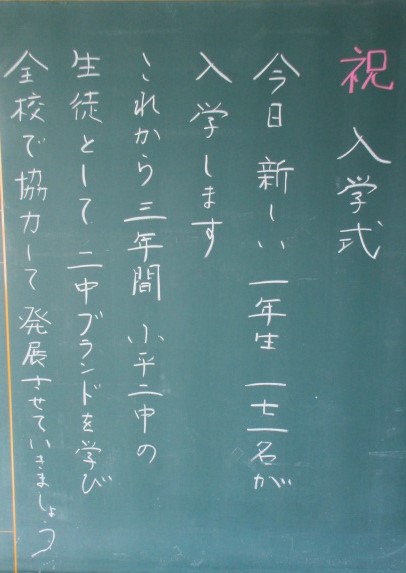 祝 入学式
今日 新しい 一年生 一七一名が
入学します
これから 三年間 小平二中の
生徒として 二中ブランドを学び
全校で協力して 発展させていきましょう